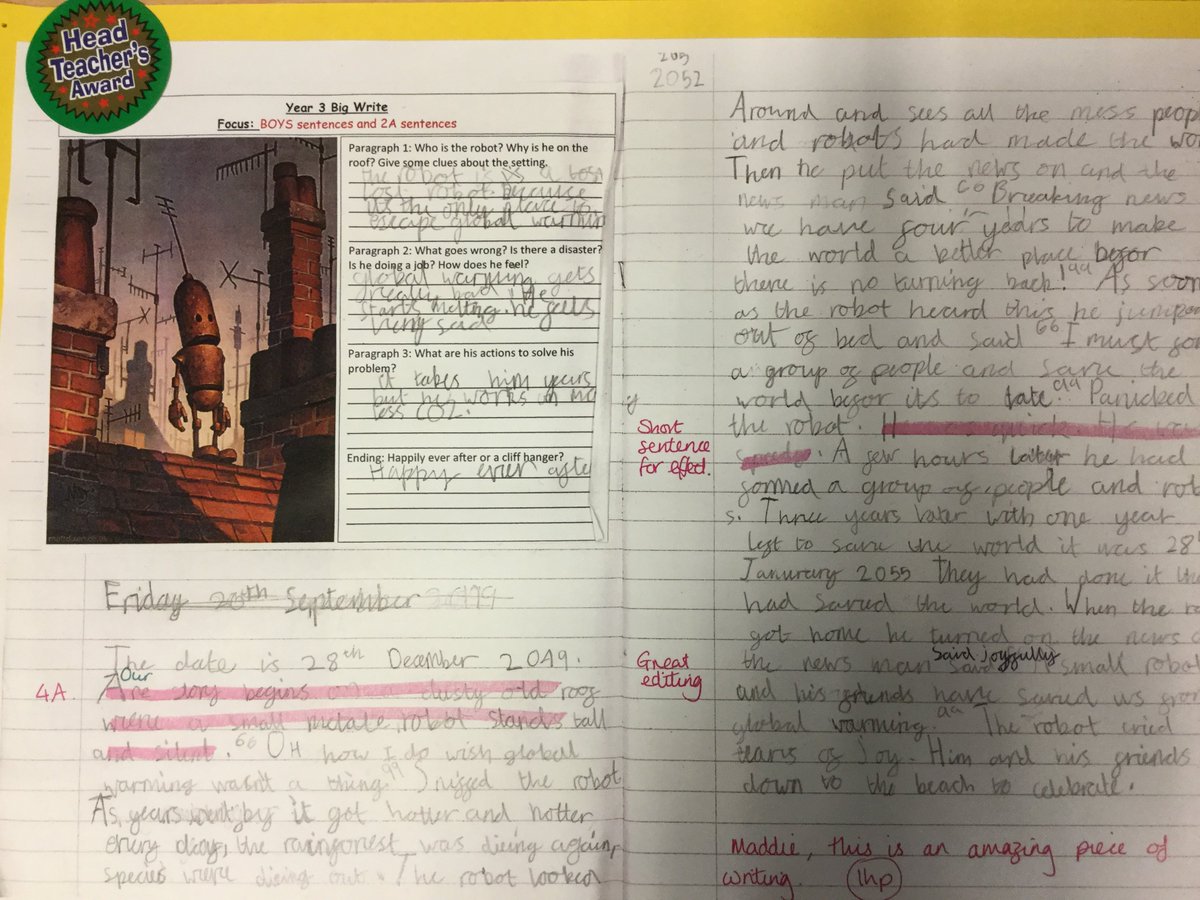 Head
Teacher's
Award
Year 3 Big Write
Focus: BOYS sentences and 2A sentences
Paragraph 1: Who is the robot? Why is he on the
roof? Give some clues about the setting.
the robot is a
lost robot because
its the only place to
escape global warmin
Paragraph 2: What goes wrong? Is there a disaster?
Is he doing a job? How does he feel?
global warming gets
really bad! He
starts melting. he feels
very sad
Paragraph 3: What are his actions to solve his
problem?
it takes him years
but he works on
less CO2.
Ending: Happily ever after or a cliff hanger?
Happy ever afte
Friday 20th September 2019
The date is 28th December 2049.
4A.
Our
story begins on a dusty old roof
were a small metale robot stands tall
and silent. "OH how I do wish global
warming wasn't a thing" sniffed the robot
As years went by it got hotter and hotter
every day, the rainforest was dieing again,
species were dieing out. The robot looked
205
2052
Around and sees all the mess peop
and robots had made the wor
Then he put the news on and the
news man said "Breaking news
we have four years to make
the world a better place befor
there is no turning back!" As soon
as the robot heard this he jumped
out of bed and said "I must for
a group of people and save the
world befor its to late" Panicked
Short
sentence
for effect.
the robot. He was quick. He was
speedy. A few hours later he had
formed a group of people and rob
s. Three years later with one year
left to save the world it was 28
Janurary 2055 They had done it the
had saved the world. When the ro
got home he turned on the news a
Great
editing
the news man said joyfully small robot
and his friends have saved us from
global warming." The robot cried
tears of joy. Him and his friends
down to the beach to celebrate.
Maddie, this is an amazing piece of
writing. 1hp